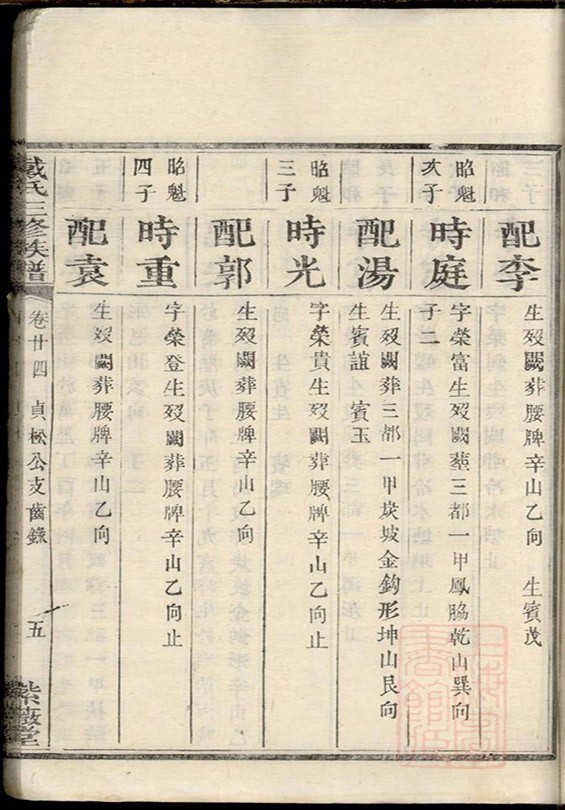 配李
生歿闕葬腰牌辛山乙向 生賓茂
昭魁
亥子
時庭
字榮富生歿闕塟三都一甲鳳脇乾山巽向
子二
配湯
生歿闕葬三都一甲埉坡金鈎形坤山艮向
生賓誼 賓玉
昭魁
三子
時光
字榮貴生歿闕葬腰牌辛山乙向止
配郭
生歿闕葬腰牌辛山乙向
昭魁
四子
時重
字榮登生歿闕葬腰牌辛山乙向止
配袁
生歿闕葬腰牌辛山乙向
戴氏三修族譜
卷廿四 貞松公支齒錄
五
紫薇堂